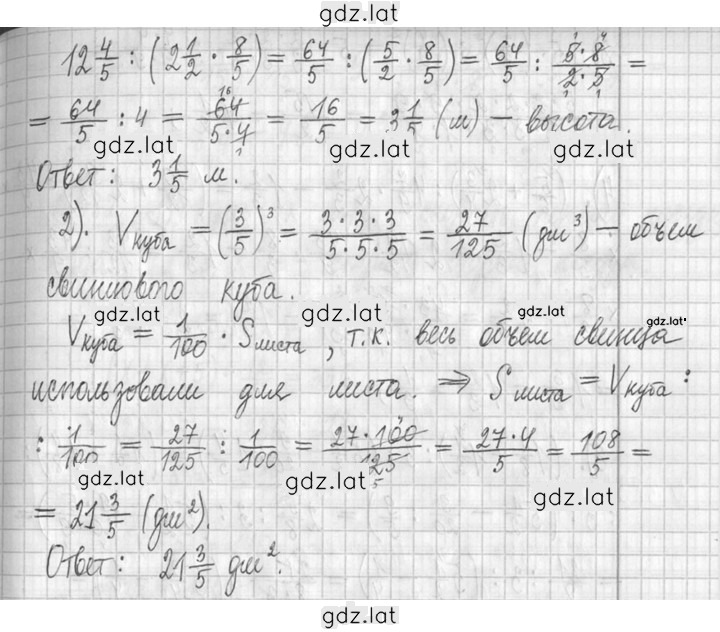 gdz.lat
12 4/5 : (2 1/2 · 8/5) = 64/5 : (5/2 · 8/5) = 64/5 : 5·8/2·5 =
= 64/5 : 4 = 64/5·4 = 16/5 = 3 1/5 (м) – высота.
gdz.lat gdz.lat gdz.lat
Ответ: 3 1/5 м.
2). Vкуба = (3/5)³ = 3·3·3/5·5·5 = 27/125 (дм³) – объем
свинцового куба.
gdz.lat gdz.lat gdz.lat
Vкуба = 1/100 · Sлиста, т.к. весь объем свинца
использовали для листа. ⇒ Sлиста = Vкуба :
: 1/100 = 27/125 : 1/100 = 27·100/125 = 27·4/5 = 108/5 =
gdz.lat gdz.lat gdz.lat
= 21 3/5 (дм²).
Ответ: 21 3/5 дм².
gdz.lat